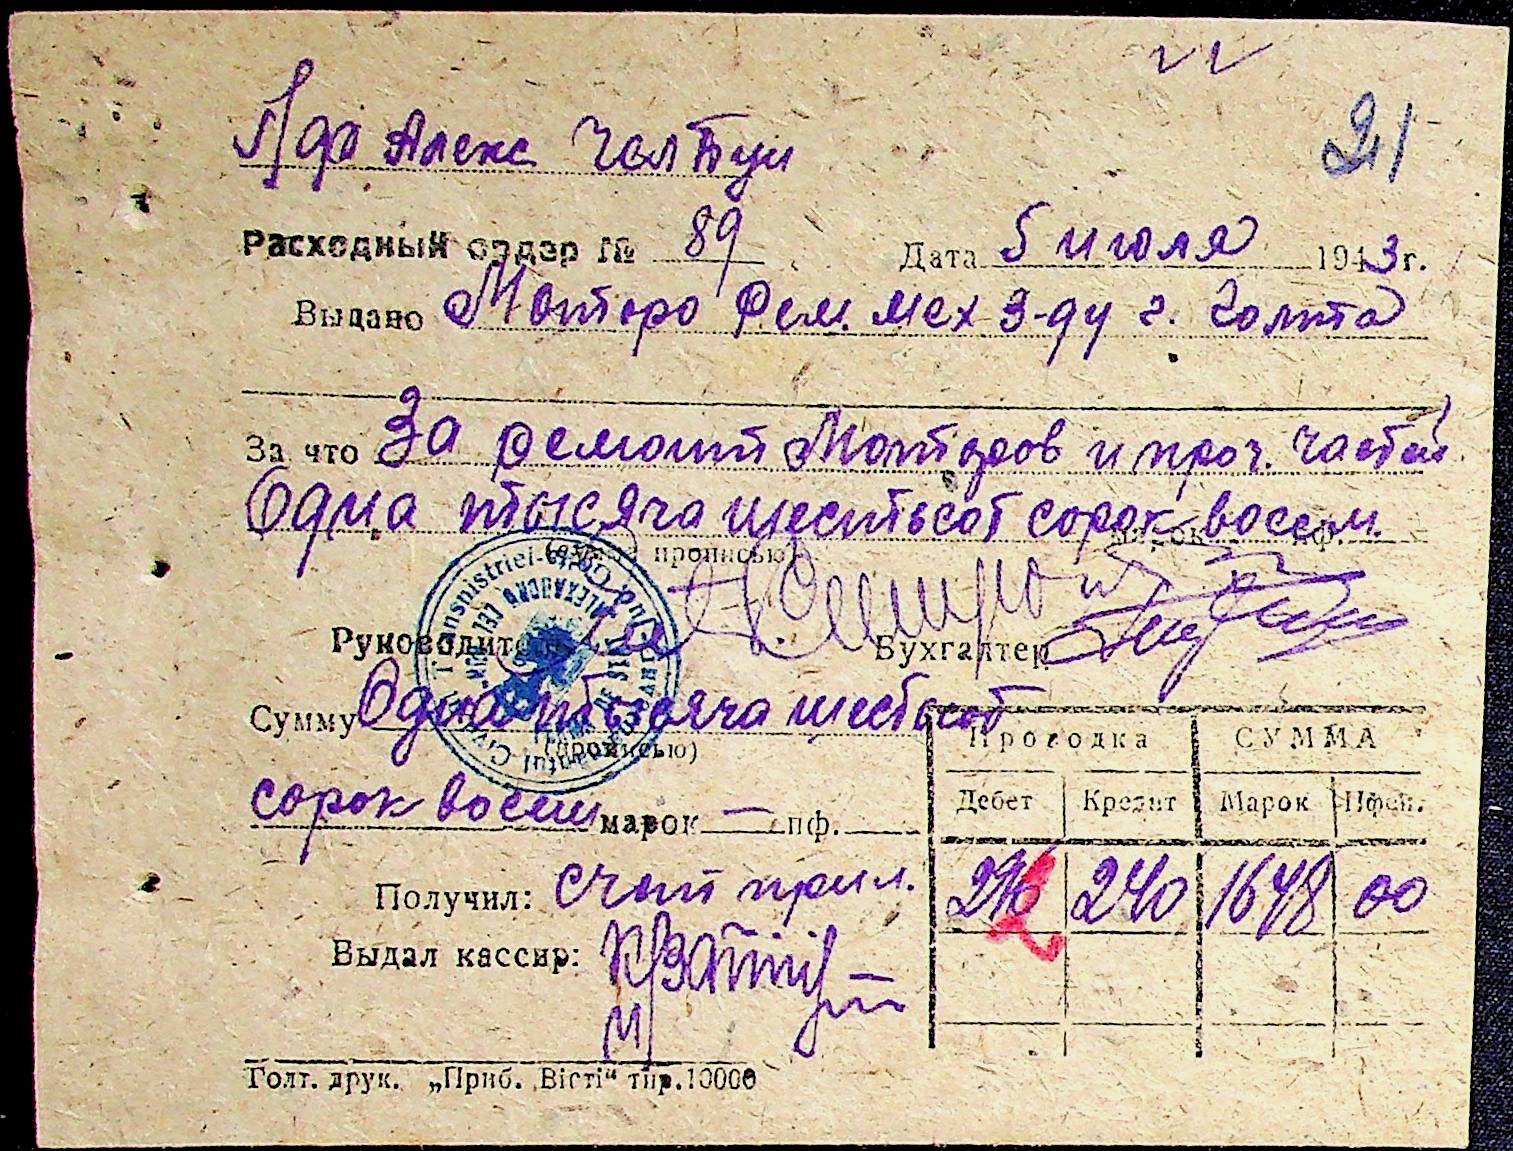 21
Алекс
Расходный ордер № 89 Дата 5 июля 1943 г.
Выдано Моторо Рем. мех з-ду г. Голта
За что За ремонт Моторов и проч. частей
Одна тысяча шестьсот сорок восем. марок пф.
(сумма прописью)
Руководитель Бухгалтер
Сумму Одна тысяча шестьсот
(прописью)
сорок восем марок — пф.
Проводка СУММА
Дебет Кредит Марок Пфен.
240 1648 00
Получил: счет прил.
Выдал кассир:
Голт. друк. „Приб. Вісті“ тир. 10000